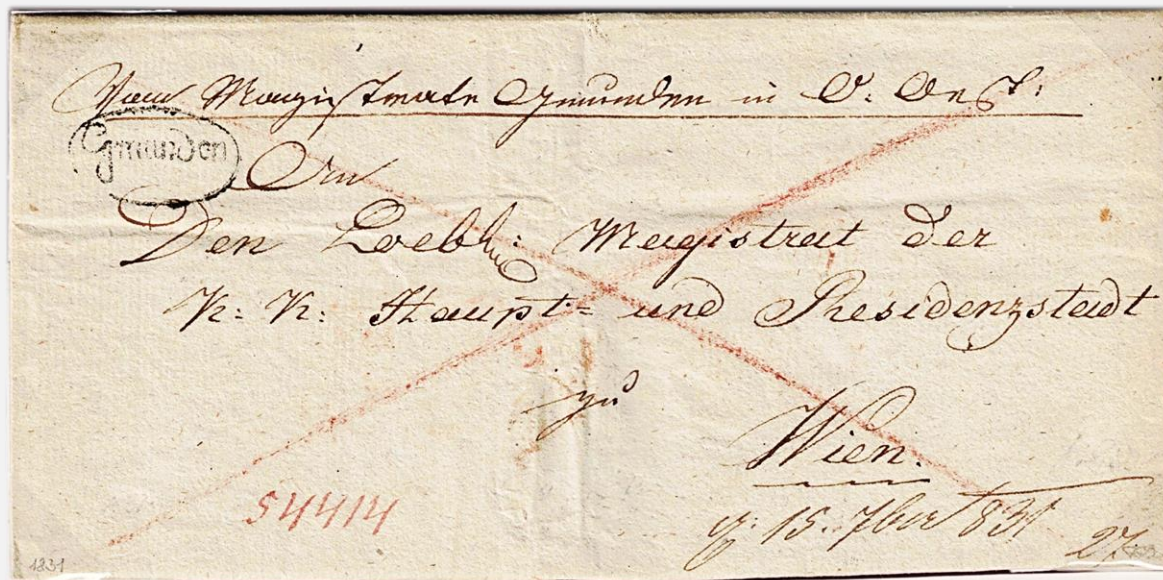 Vom Magistrate Gmunden in O: Oest:
Gmunden
An
Den Loebl: Magistrat der
K: K: Haupt= und Residenzstadt
zu
Wien.
54414
15. 7ber 831
1831